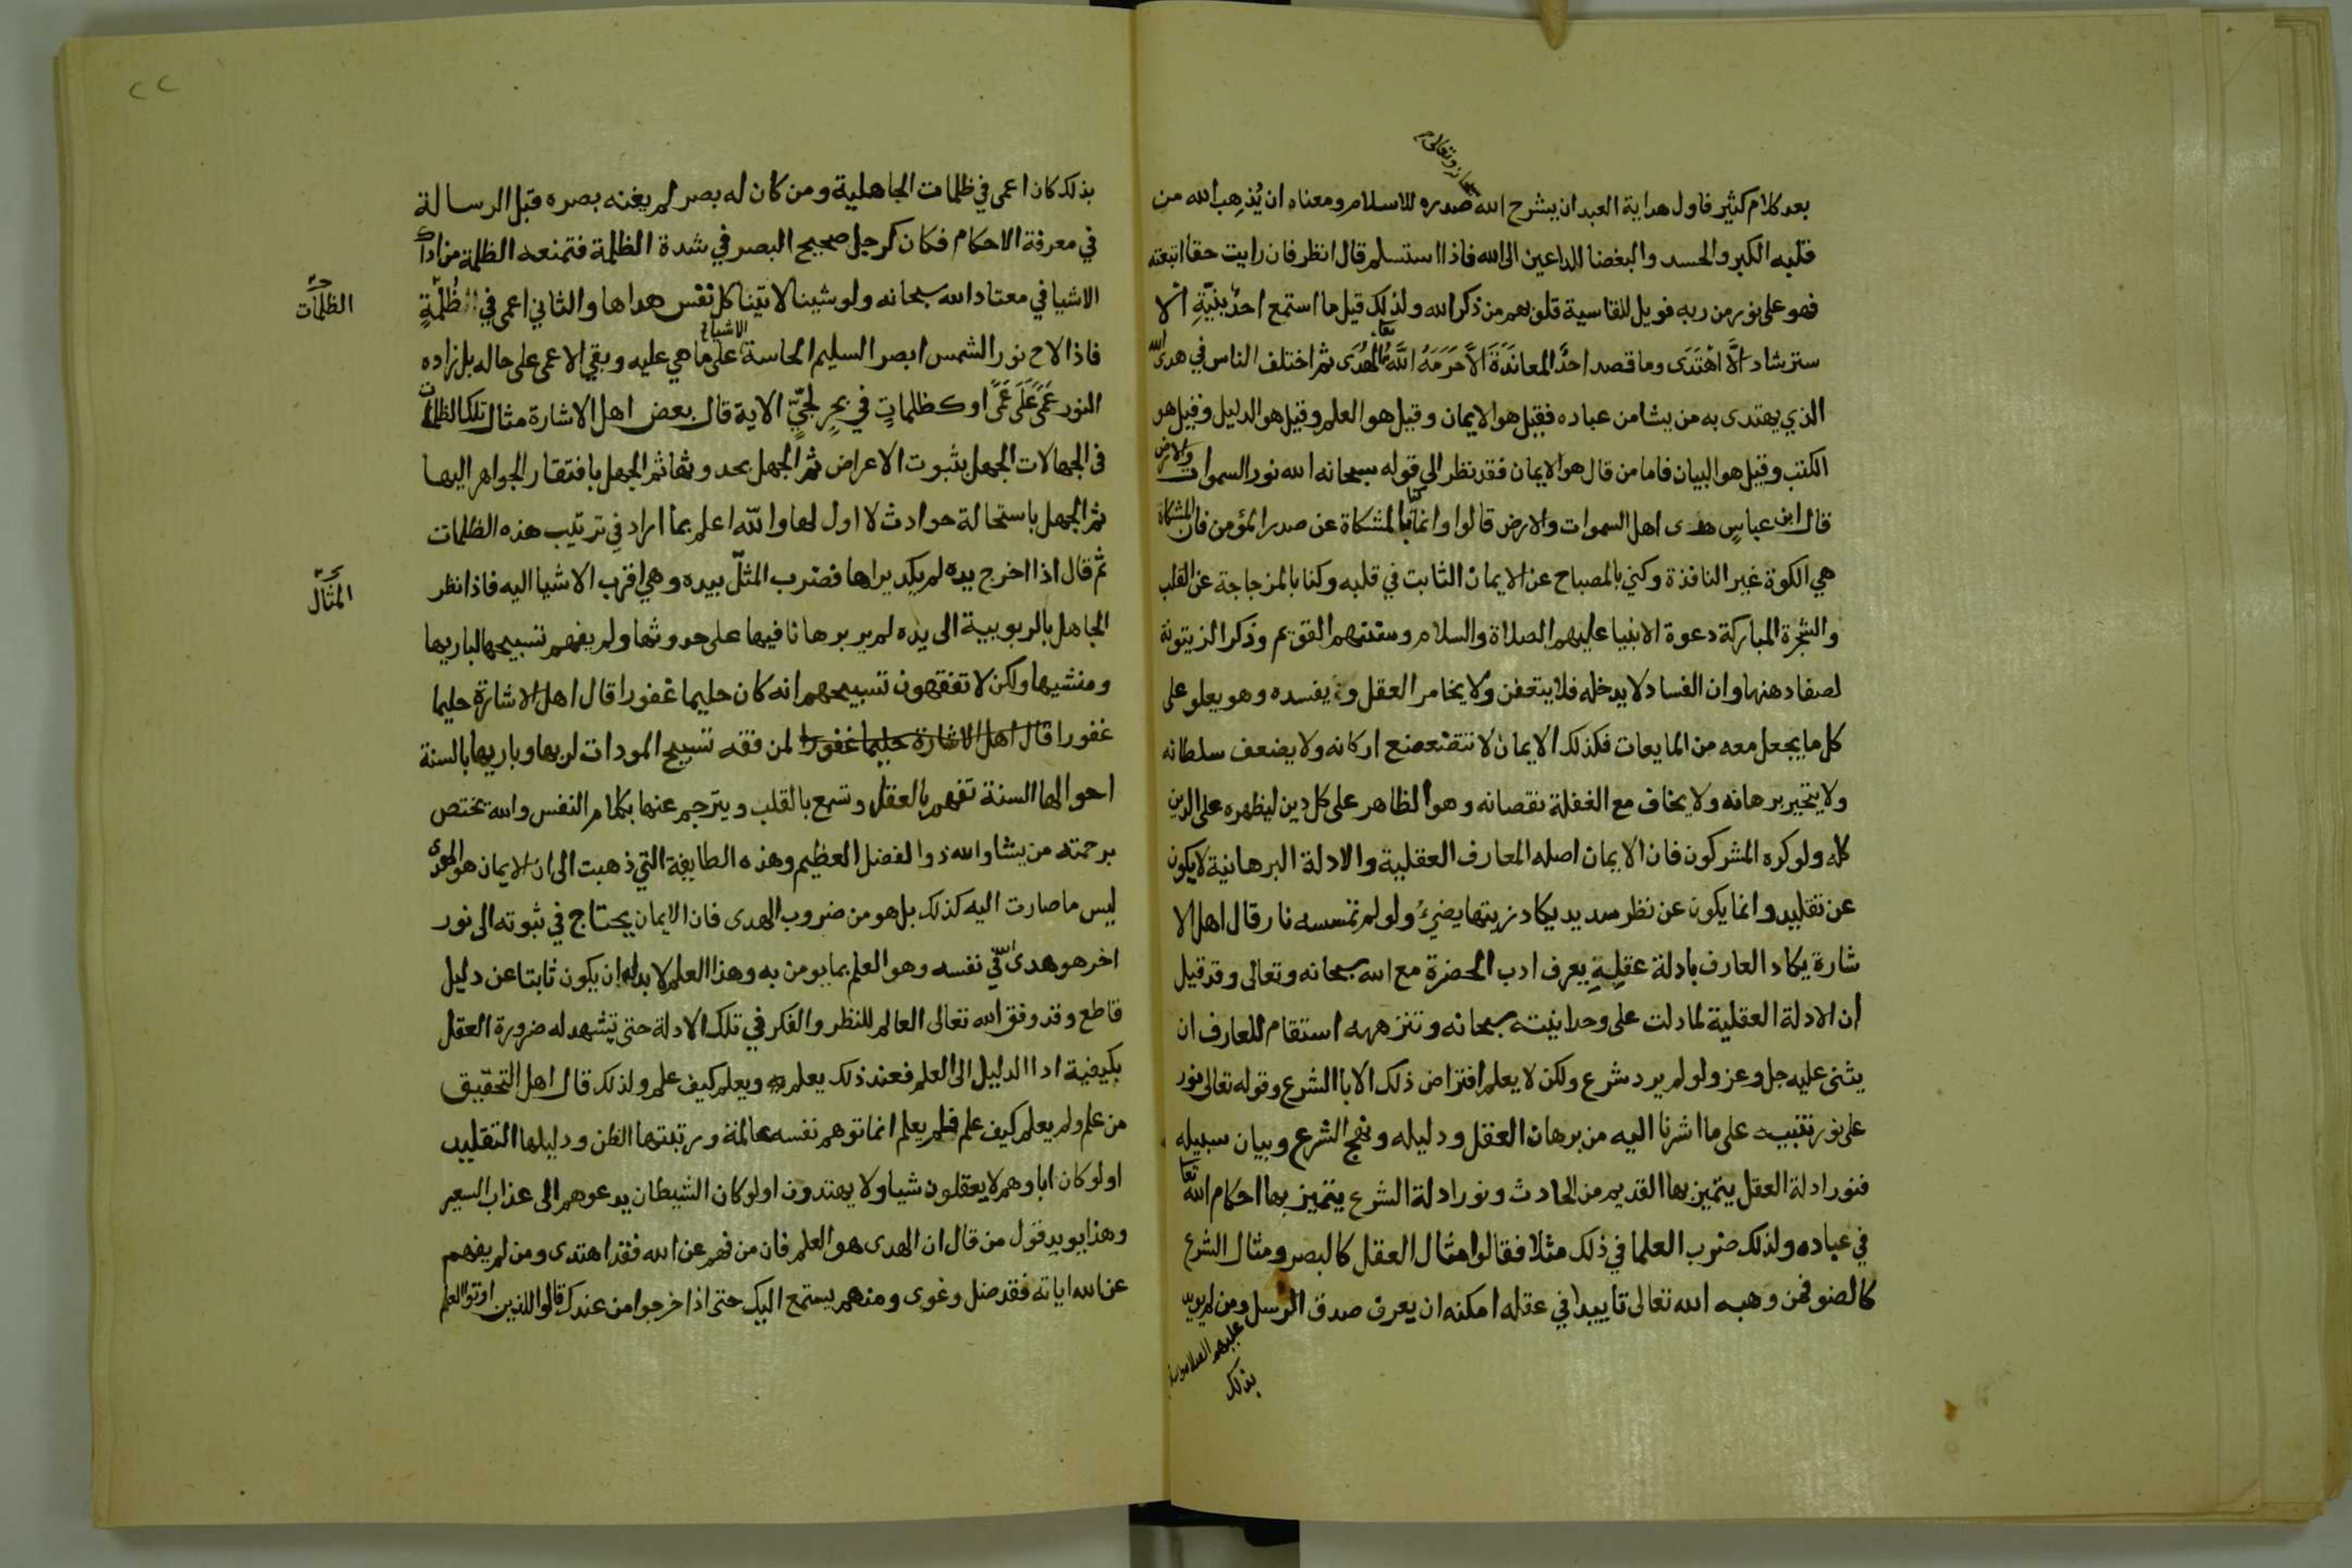 سبحانه وتعالى
بعد كلام كثير فاول هداية العبد ان يشرح الله صدره للاسلام ومعناه ان يُذهِب الله من
قلبه الكبر والحسد والبغضا الداعين الى الله فاذا استسلم قال انظر فان رايت حقا اتبعته
فهو على نور من ربه فويل للقاسية قلوبهم من ذكر الله ولذلك قيل ما استمع احدٌ بنيّةِ الا
سترشاد الَّا اهْتَدَى وما قصد احدٌ المعانَدَةَ الاَّ حَرَمَهُ اللَّه تعا الهُدَى ثم اختلف الناس في هدى الله
الذي يهتدى به من يشا من عباده فقيل هو الايمان وقيل هو العلم وقيل هو الدليل وقيل هو
الكتب وقيل هو البيان فاما من قال هو الايمان فقد نظر الى قوله سبحانه الله نور السموات والارض
قال ابن عباسٍ هدى اهل السموات والارض قالوا وانما كنا بالمشكاة عن صدر المؤمن فان المشكاة
هي الكوة غير النافذة وكني بالمصباح عن الايمان الثابت في قلبه وكنا بالزجاجة عن القلب
والشجرة المباركة دعوة الانبيا عليهم الصلاة والسلام وسنتهم القويم وذكر الزيتونة
لصفا دهنها وان الفساد لا يدخله فلا يتعفن ولا يخامر العقل ويفسده وهو يعلو على
كل ما يجعل معه من المايعات فكذلك الايمان لا تتضعضع اركانه ولا يضعف سلطانه
ولا يتحير برهانه ولا يخاف مع الغفلة نقصانه وهو الظاهر على كل دين ليظهره على الدين
كله ولو كره المشركون فان الايمان اصله المعارف العقلية والادلة البرهانية لا يكون
عن تقليد وانما يكون عن نظر سديد يكاد زيتها يضيءُ ولو لم تمسسه نار قال اهل الا
شارة يكاد العارف بادلة عقلِيةِ يعرف ادب الحضرة مع الله سبحانه وتعالى وقد قيل
ان الادلة العقلية لما دلت على وحدانيته سبحانه وتنزهه استقام للعارف ان
يثنى عليه جل وعز ولو لم يرد شرع ولكن لا يعلم افتراض ذلك الا با الشرع وقوله تعالى نور
على نور تنبيه على ما اشرنا اليه من برهان العقل ودليله ونهج الشرع وبيان سبيله
فنور ادلة العقل يتميز بها القديم من الحادث ونور ادلة الشرع يتميز بها احكام الله تعا
في عباده ولذلك ضرب العلما في ذلك مثلا فقالوا مثال العقل كالبصر ومثال الشرع
كالضو فمن وهبه الله تعالى تاييدا في عقله امكنه ان يعرف صدق الرسل ومن لم يويد
عليهم السلام
بذلك
٢٢
بذلك كان اعمى في ظلمات الجاهلية ومن كان له بصر لم يغنه بصره قبل الرسالة
في معرفة الاحكام فكان كرجل صحيح البصر في شدة الظلمة فتمنعه الظلمة من ادراك
الاشيا في معتاد الله سبحانه ولو شينا لاتينا كل نفس هداها والثاني اعمى في الظُلْمَةِ
الظلمات
فاذا لاح نور الشمس ابصر السليم الحاسة الاشيا على ما هي عليه وبقي الاعمى على حاله بل زاده
النور عَمًى عَلَى عَمًى او كظلماتٍ في بحرٍ لجيٍّ الاية قال بعض اهل الاشارة مثال تلك الظلمات
في الجهالات الجهل بثبوت الاعراض ثم الجهل بحدوثها ثم الجهل بافتقار الجواهر اليها
ثم الجهل باستحالة حوادث لا اول لها والله اعلم بما اراد في ترتيب هذه الظلمات
ثم قال اذا اخرج يده لم يكد يراها فضرب المثلّ بيده وهي اقرب الاشيا اليه فاذا نظر
المثال
الجاهل بالربوبية الى يده لم ير برهانا فيها على حدوثها ولم يفهم تسبيحها لباريها
ومنشيها ولكن لا تفقهون تسبيحهم انه كان حليما غفورا قال اهل الاشارة حليما
غفورا قال اهل الاشارة حليما غفورا لمن فقه تسبيح المودات لربها وباريها بالسنة
احوالها السنة تفهم بالعقل وتسمع بالقلب ويترجم عنها بكلام النفس والله يختص
برحمته من يشا والله ذوا الفضل العظيم وهذه الطايفة التي ذهبت الى ان الايمان هو الهدى
ليس ما صارت اليه كذلك بل هو من ضروب الهدى فان الايمان يحتاج في ثبوته الى نور
اخر هو هدى الله في نفسه وهو العلم بما يومن به وهذا العلم لا بد له ان يكون ثابتا عن دليل
قاطع وقد وفق الله تعالى العالم للنظر والفكر في تلك الادلة حتى تشهد له ضرورة العقل
بكيفية ادا الدليل الى العلم فعند ذلك يعلم ويعلم كيف علم ولذلك قال اهل التحقيق
من علم ولم يعلم كيف علم فلم يعلم انما توهم نفسه عالمة ورتبتها الظن ودليلها التقليد
اولو كان اباوهم لا يعقلون شيا ولا يهتدون اولو كان الشيطان يدعوهم الى عذاب السعير
وهذا يويد قول من قال ان الهدى هو العلم فان من فهم عن الله فقد اهتدى ومن لم يفهم
عن الله اياته فقد ضل وغوى ومنهم يستمع اليك حتى اذا خرجوا من عندك قالوا للذين اوتوا العلم